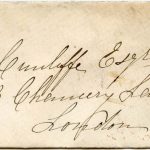 Cunliffe Esqr
Chancery La
London